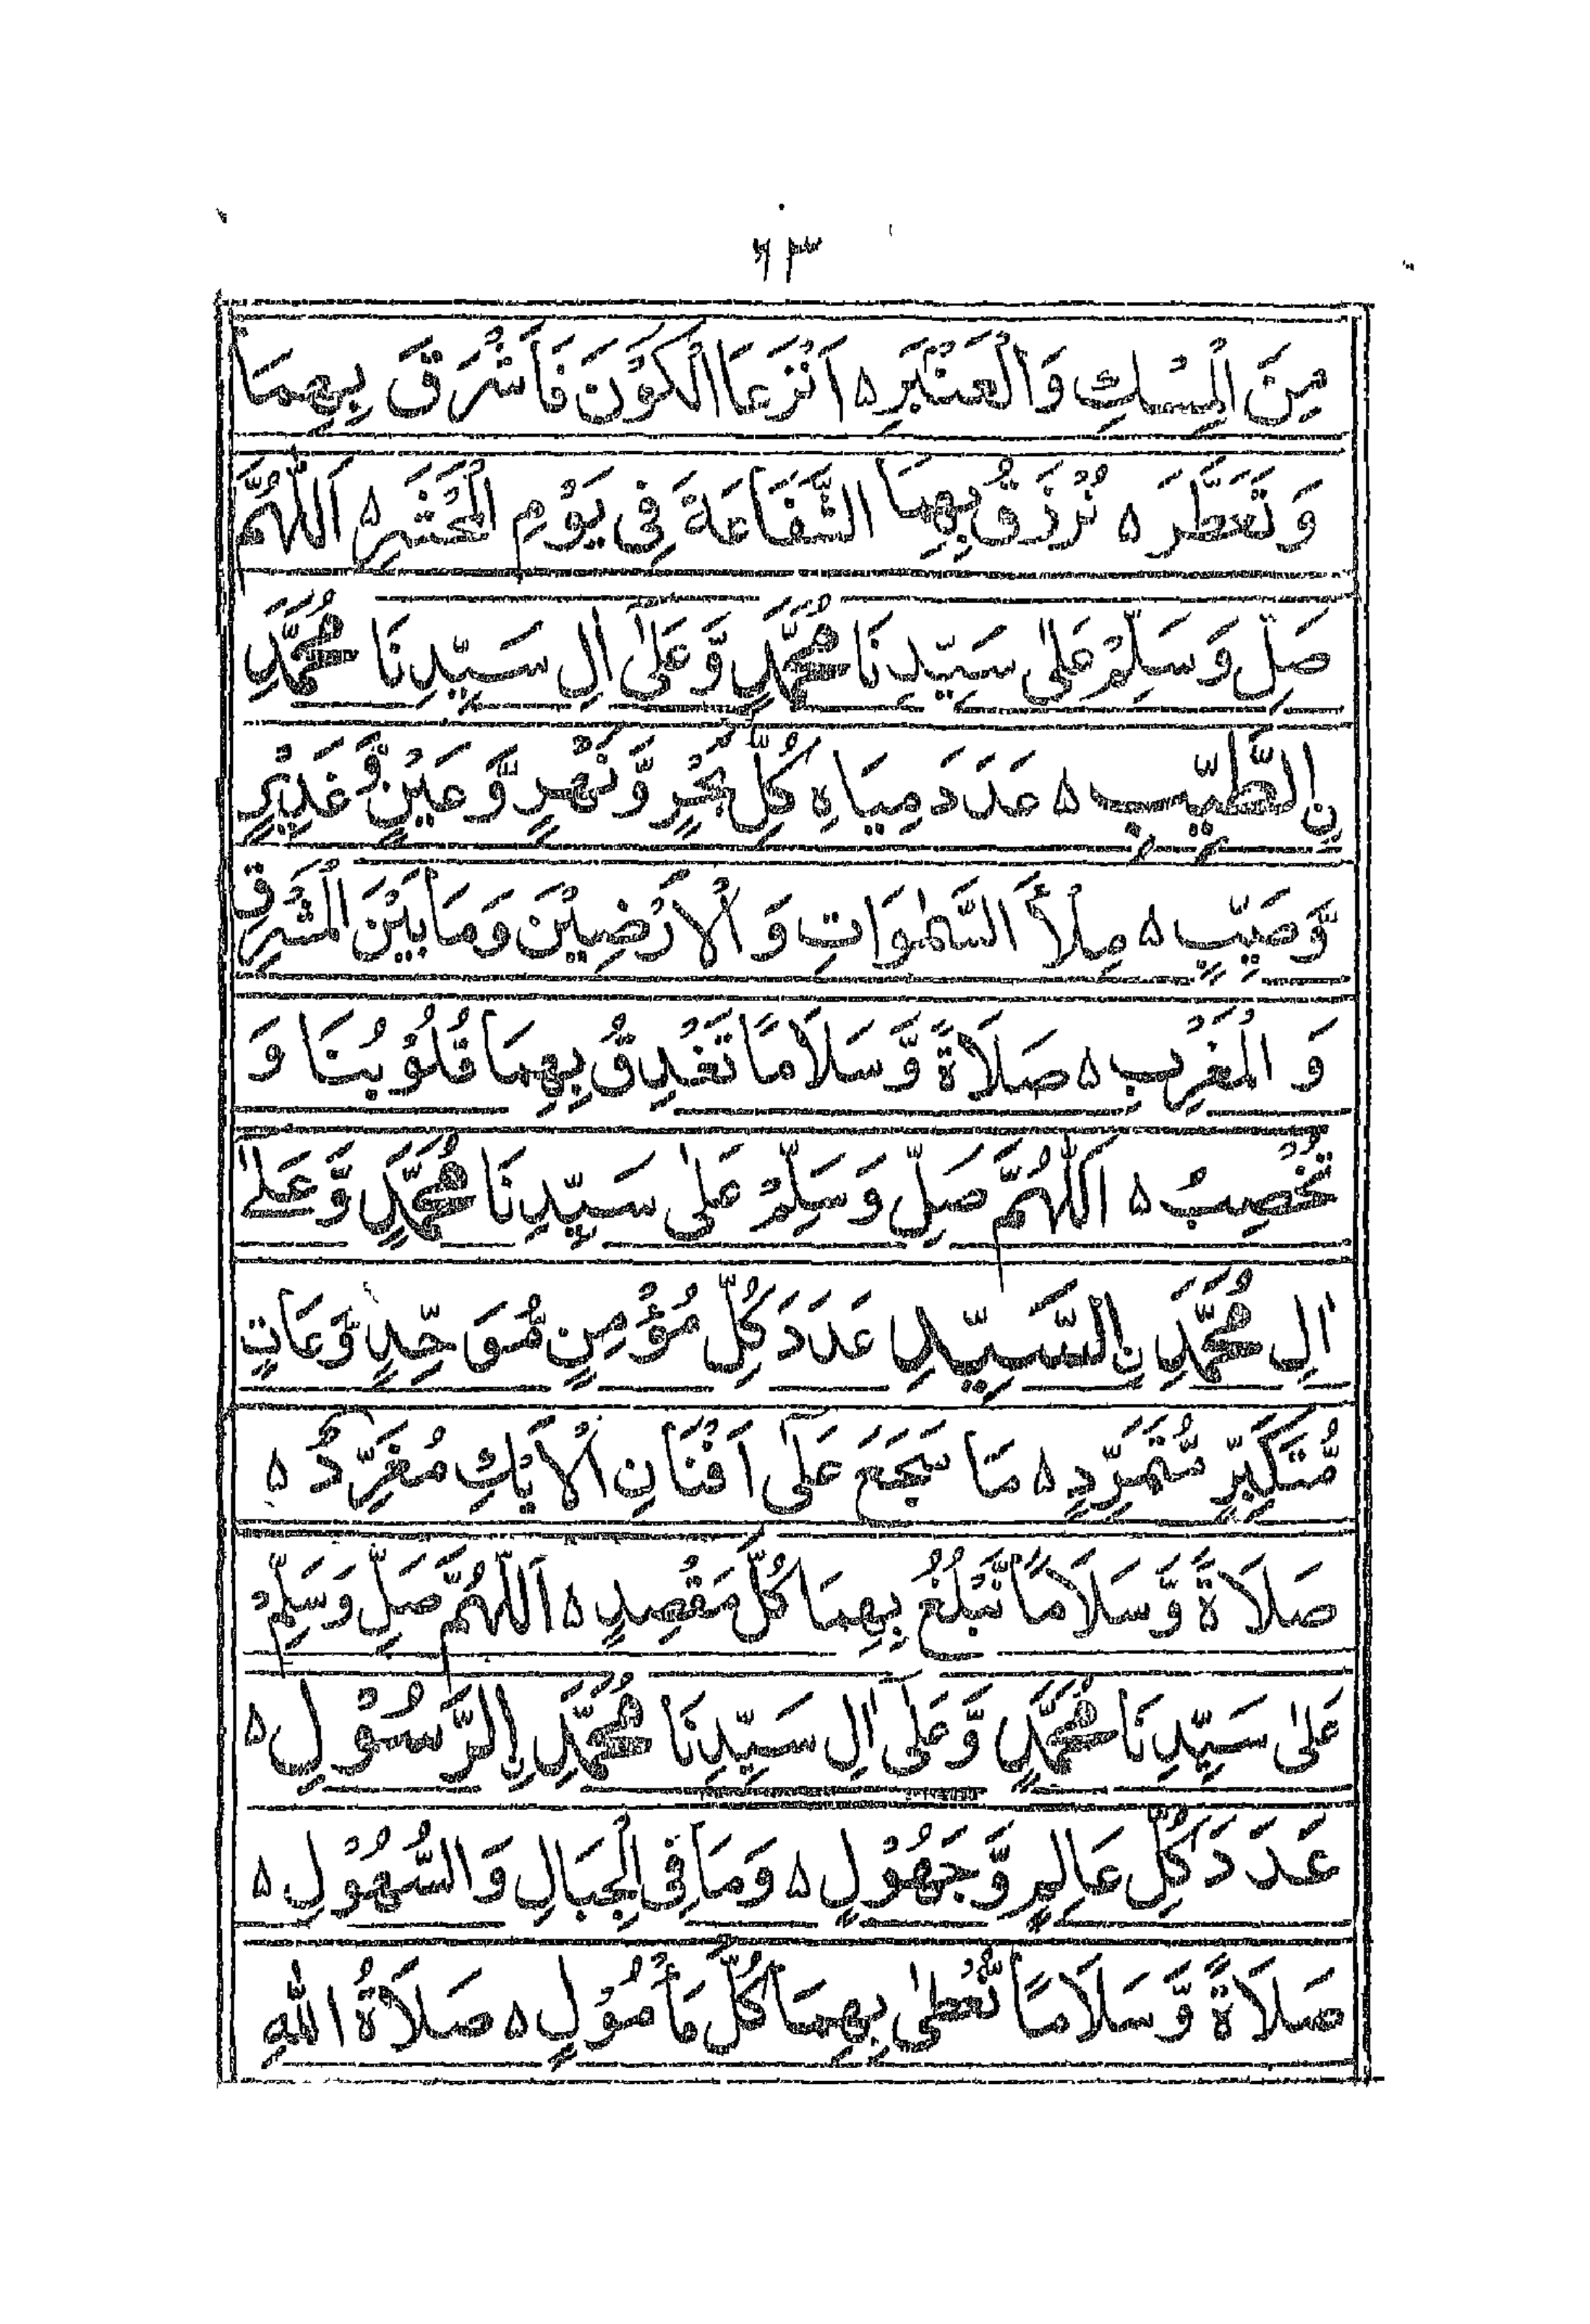 ۳۶
مِنَ الْمِسْكِ وَالْعَنْبَرِ ۵ اَتْرَعَا الْكَوْنَ فَاَشْرَقَ بِهِمَا
وَ تَعَطَّرَ ۵ نُرْزَقُ بِهِمَا الشَّفَاعَةَ فِى يَوْمِ الْمَحْشَرِ ۵ اَللّٰهُمَّ
صَلِّ وَسَلِّمْ عَلٰى سَيِّدِنَا مُحَمَّدٍ وَّعَلٰٓى اٰلِ سَيِّدِنَا مُحَمَّدِ
نِ الطَّيِّبِ ۵ عَدَدَ مِيَاهِ كُلِّ بَحْرٍ وَّنَهْرٍ وَّعَيْنٍ وَّغَدِيْرٍ
وَّصَيِّبٍ ۵ مِلْأَ السَّمٰوَاتِ وَ الْاَرْضِيْنَ وَمَا بَيْنَ الْمَشْرِقِ
وَ الْمَغْرِبِ ۵ صَلَاةً وَّسَلَامًا تَغْدِقُ بِهِمَا قُلُوْبُنَا وَ
تُخْصِبُ ۵ اَللّٰهُمَّ صَلِّ وَسَلِّمْ عَلٰى سَيِّدِنَا مُحَمَّدٍ وَّعَلٰٓے
اٰلِ مُحَمَّدِ نِ السَّيِّدِ عَدَدَ كُلِّ مُؤْمِنٍ مُّوَحِّدٍ وَّعَاتٍ
مُّتَكَبِّرٍ مُّتَمَرِّدٍ ۵ مَا سَجَعَ عَلٰٓى اَفْنَانِ الْاَيْكِ مُغَرِّدٌ ۵
صَلَاةً وَّسَلَامًا نَّبْلُغُ بِهِمَا كُلَّ مَقْصِدٍ ۵ اَللّٰهُمَّ صَلِّ وَسَلِّمْ
عَلٰى سَيِّدِنَا مُحَمَّدٍ وَّعَلٰٓى اٰلِ سَيِّدِنَا مُحَمَّدِ نِ الرَّسُوْلِ ۵
عَدَدَ كُلِّ عَالِمٍ وَّجَهُوْلٍ ۵ وَمَا فِى الْجِبَالِ وَالسُّهُوْلِ ۵
صَلَاةً وَّسَلَامًا نُّعْطٰى بِهِمَا كُلَّ مَأْمُوْلٍ ۵ صَلَاةُ اللّٰهِ